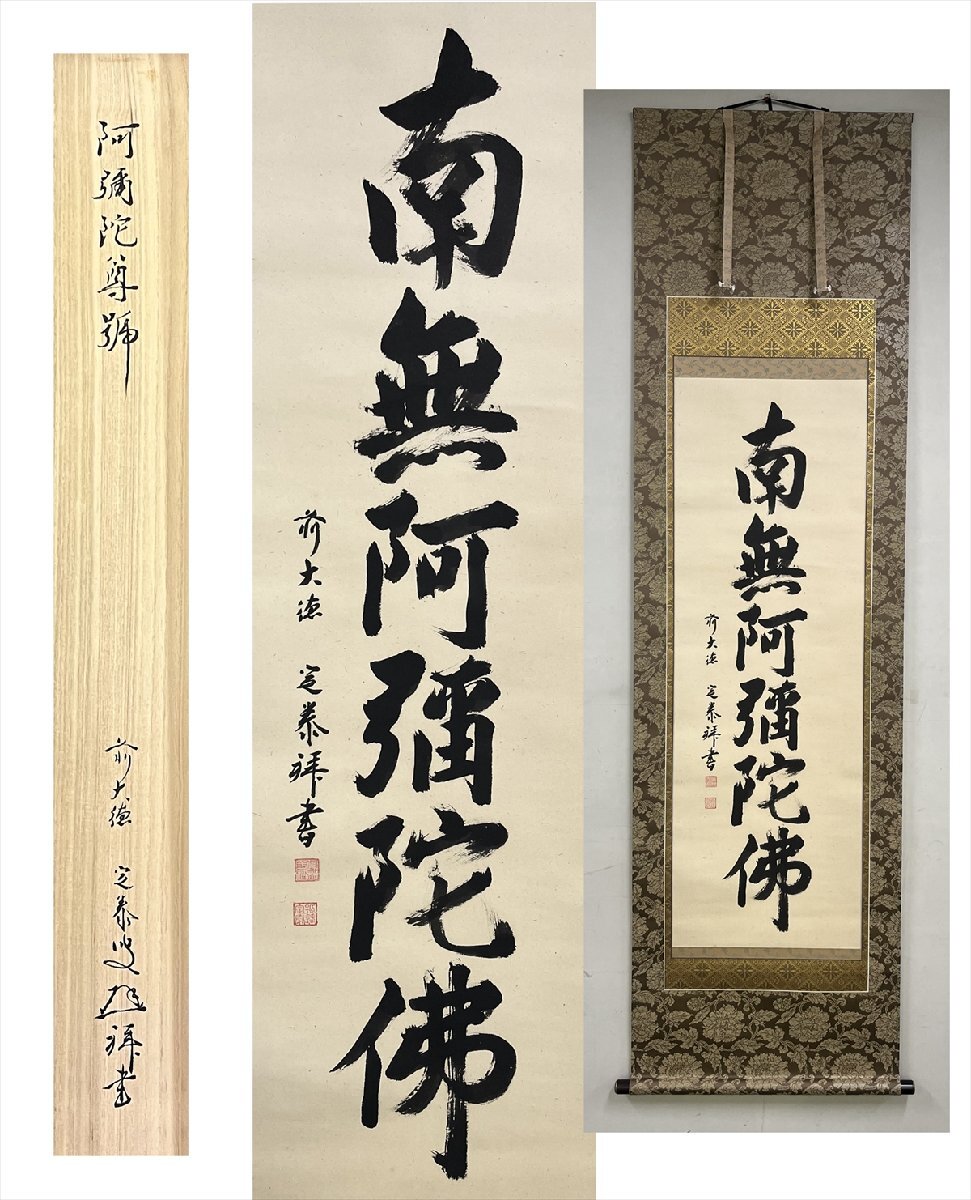 阿彌陀尊號
前大德 定泰叟 拜書
南無阿彌陀佛
前大德 定泰拜書
南無阿彌陀佛
前大德 定泰拜書